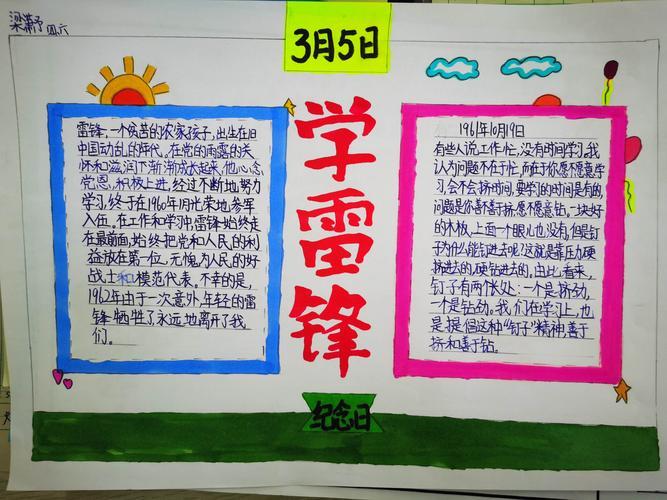 梁潇予 四六
3月5日
学雷锋
纪念日
雷锋,一个贫苦的农家孩子,出生在旧
中国动乱的年代。在党的雨露的关
怀和滋润下渐渐成长起来,他心念
党恩,积极上进,经过不断地努力
学习,终于在1960年1月光荣地参军
入伍。在工作和学习中,雷锋始终走
在最前面,始终把党和人民的利
益放在第一位,无愧为人民的好
战士和模范代表。不幸的是,
1962年由于一次意外,年轻的雷
锋牺牲了,永远地离开了我
们。
1961年10月19日
有些人说工作忙,没有时间学习。我
认为问题不在于忙,而在于你愿不愿意学
习,会不会挤时间,要学习的时间是有的,
问题是你善不善挤,愿不愿意钻。一块好
的木板,上面一个眼心也没有,但是钉
子为什么能钉进去呢?这就是靠压力硬
挤进去的,硬钻进去的,由此看来,
钉子有两个长处:一个是挤劲,
一个是钻劲。我们在学习上,也
是提倡这种“钉子”精神,善于
挤和善于钻。